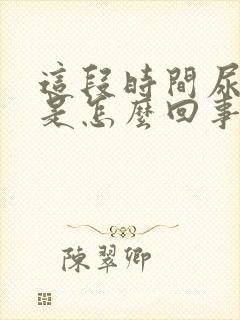 這段時間尿
是怎麼回事
陳翠卿